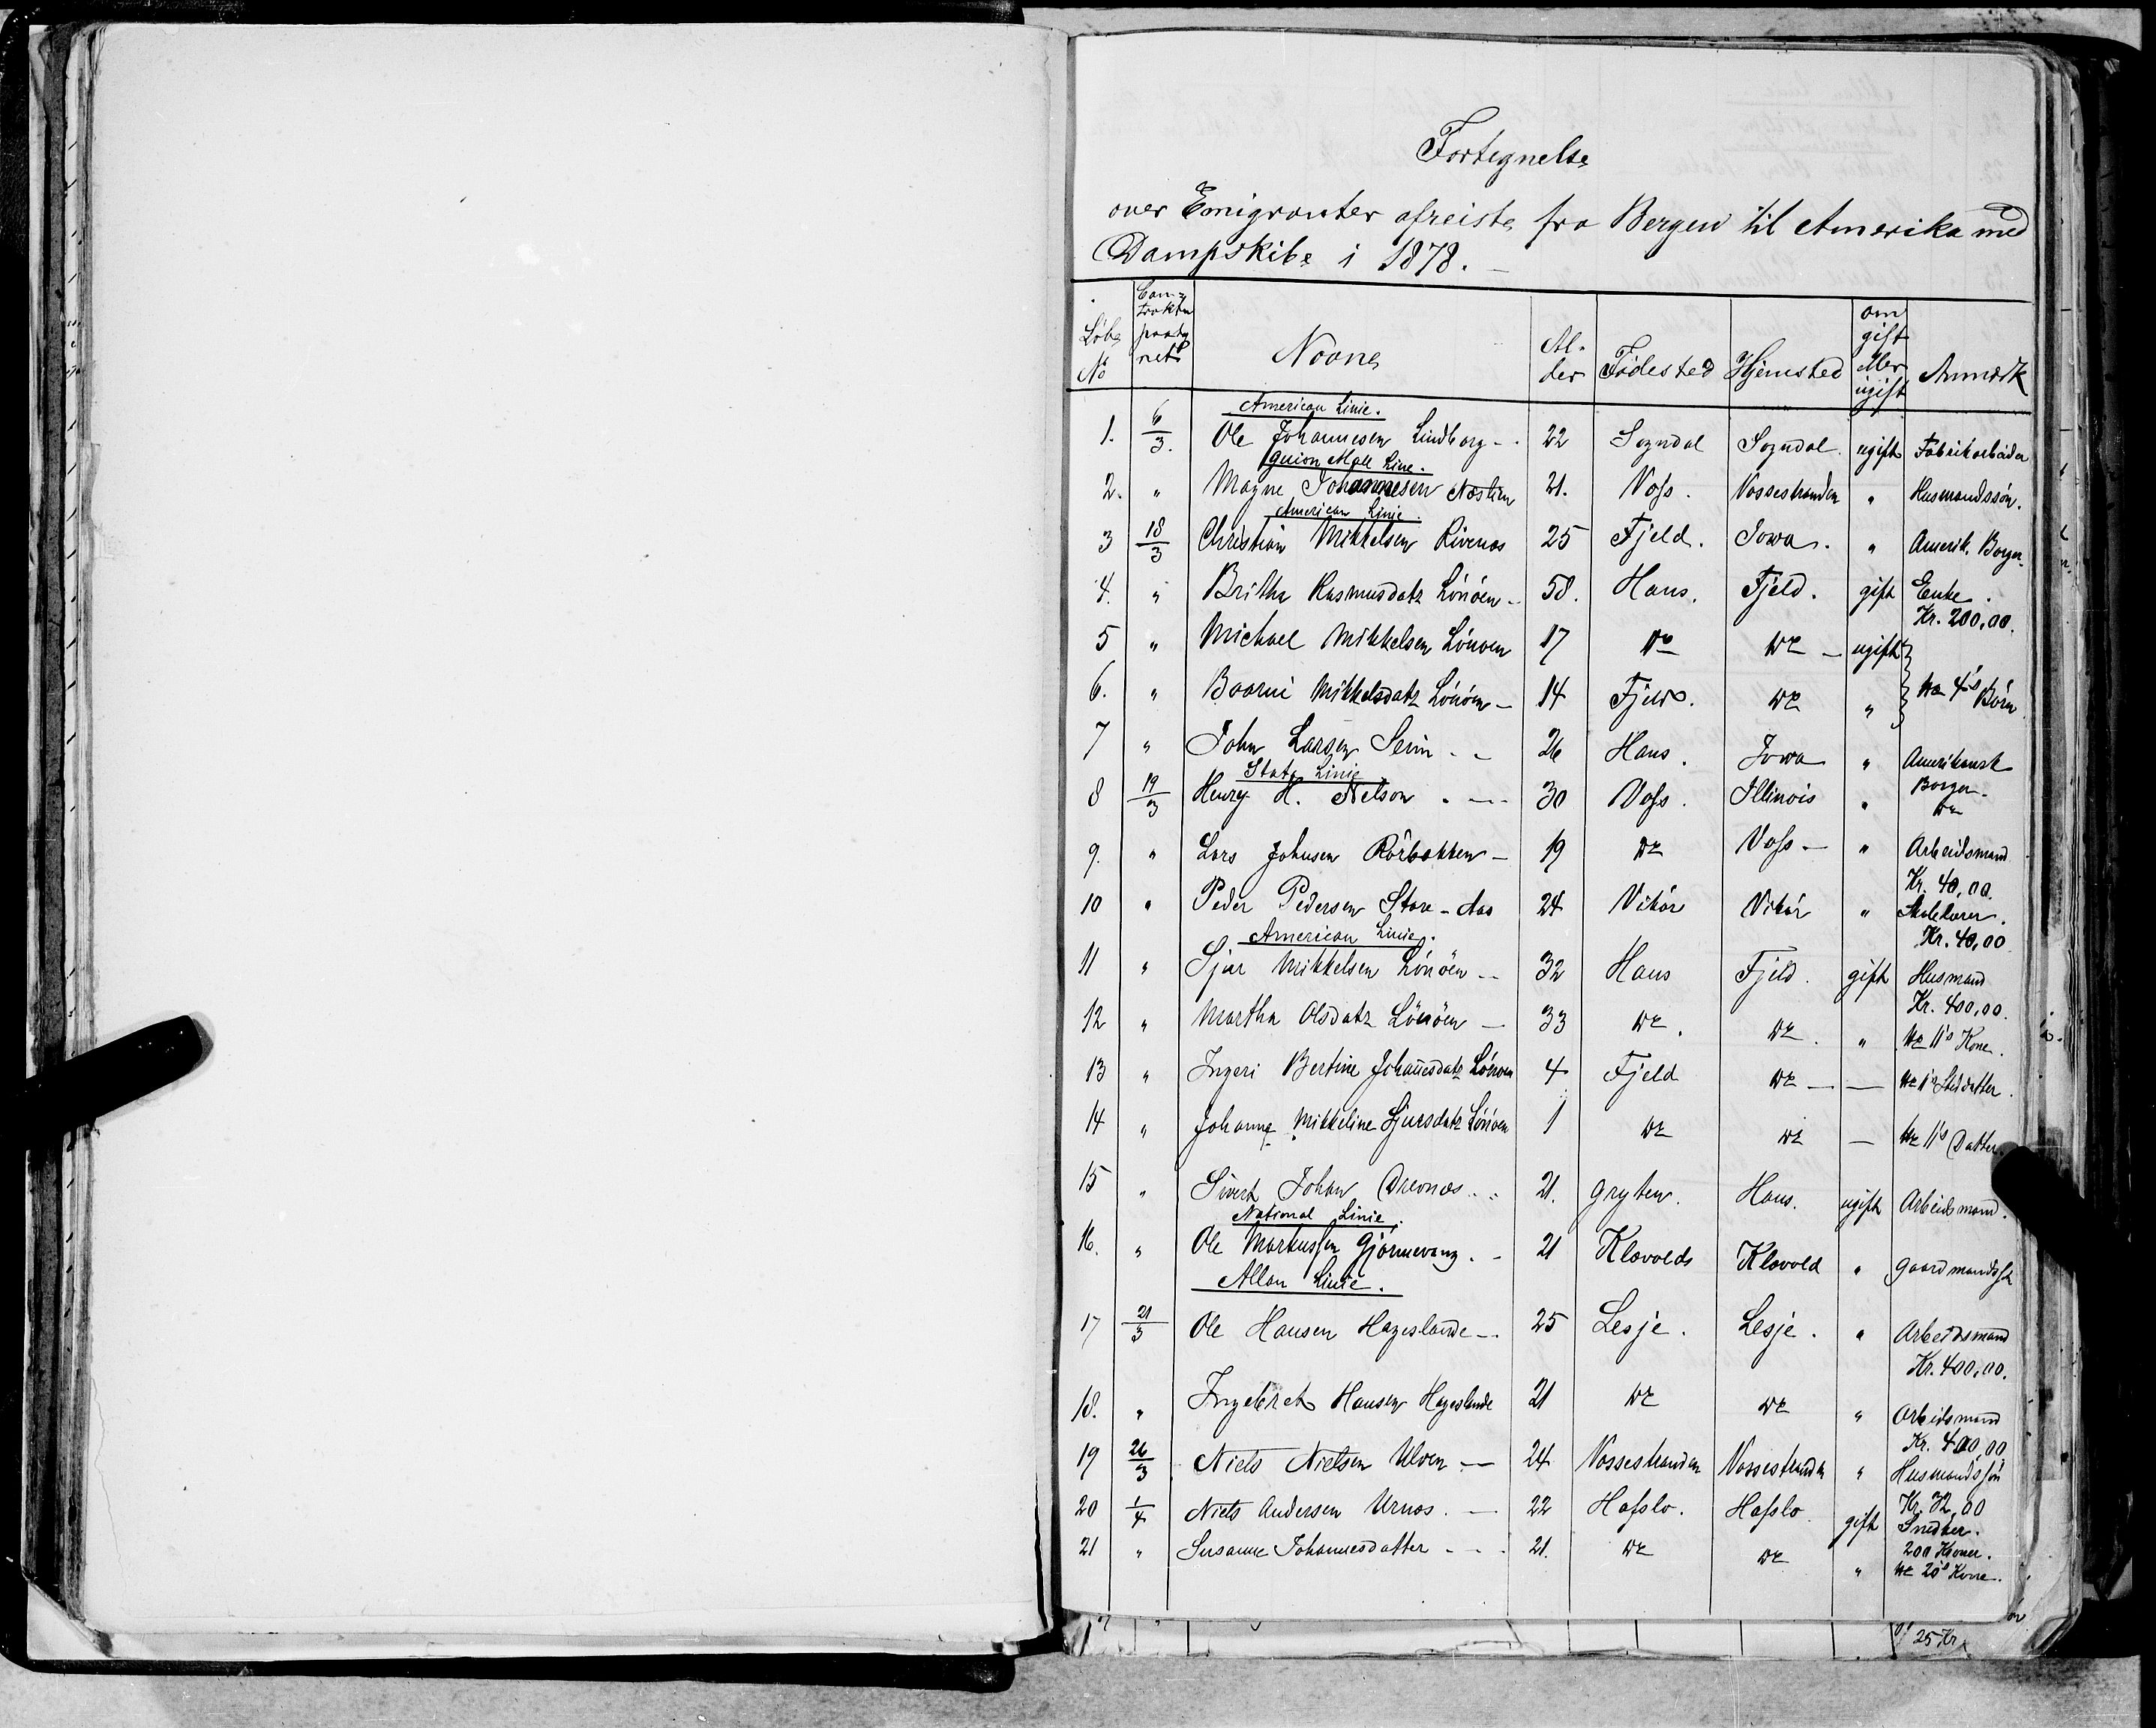 Fortegnelse
over Emigranter afreiste fra Bergen til Amerika med
Dampskibe i 1878. –
Löbe No | Contrakten paategnet | Navne | Alder | Födested | Hjemsted | om gift eller ugift | Anmærk
American Linie.
1. | 6/3. | Ole Johannesen Lindborg – . | 22 | Sogndal | Sogndal. | ugift | Fabrikarbeider
Guion Mail Line.
2. | " | Magne Johannesen Næstien | 21. | Voss. | Vossestranden | " | Husmandssön.
American Linie.
3 | 18/3 | Christian Mikkelsen Rivenæs | 25 | Fjeld. | Iowa. | " | Amerik. Borger.
4. | " | Britha Rasmusdatr Lönöen – | 58. | Haus. | Fjeld. | gift | Enke. Kr. 200,00.
5 | " | Michael Mikkelsen Lönöen | 17 | do | do – | ugift
6. | " | Baarni Mikkelsdatr Lönöen – | 14 | Fjeld. | do | " | No 4's Börn
7 | " | John Larsen Serin . – | 26 | Haus. | Iowa | " | Amerikansk Borger.
State Linie
8 | 19/3 | Henry H. Nelson . – – | 30 | Voss. | Illinois | " | do
9. | " | Lars Johnsen Rörbakken – | 19 | do | Voss – | " | Arbeidsmand Kr. 40,00.
10 | " | Peder Pedersen Store-Aas | 24 | Vikör | Vikör | " | Skolelærer. Kr. 40,00
American Linie.
11 | " | Sjur Mikkelsen Lönöen – – | 32 | Haus | Fjeld. | gift | Husmand Kr. 400,00.
12 | " | Martha Olsdatr Lönöen – | 33 | do. | do. | " | No 11's Kone.
13 | " | Ingeri Bertine Johannesdatr Lönöen | 4 | Fjeld | do – | — | No 11's Steddatter.
14 | " | Johanne Mikkeline Sjursdatr Lönöen | 1 | do | do | — | No 11's Datter.
15 | " | Sivert Johan Drevnæs . . | 21. | Gryten. | Haus. | ugift | Arbeidsmand.
National Linie.
16. | " | Ole Markussen . – | 21 | Klævolds | Klævold | "
Allan Linie.
17 | 21/3 | Ole Hansen Hageslande – . | 25 | Lesje. | Lesje. | " | Arbeidsmand Kr. 400,00.
18. | " | Ingebret Hansen Hageslande | 21 | do | do | " | Arbeidsmand Kr. 400,00
19 | 26/3 | Niels Nielsen Ulven – | 24 | Vossestranden | Vossestranden | " | Husmandssön Kr. 32,00
20 | 1/4 | Niels Andersen Urnæs. – | 22 | Hafslo. | Hafslo. | gift | Snedker. 200 Kroner.
21 | " | Susanne Johannesdatter – – . | 21. | do | do | " | No 20's Kone.
25 Kr